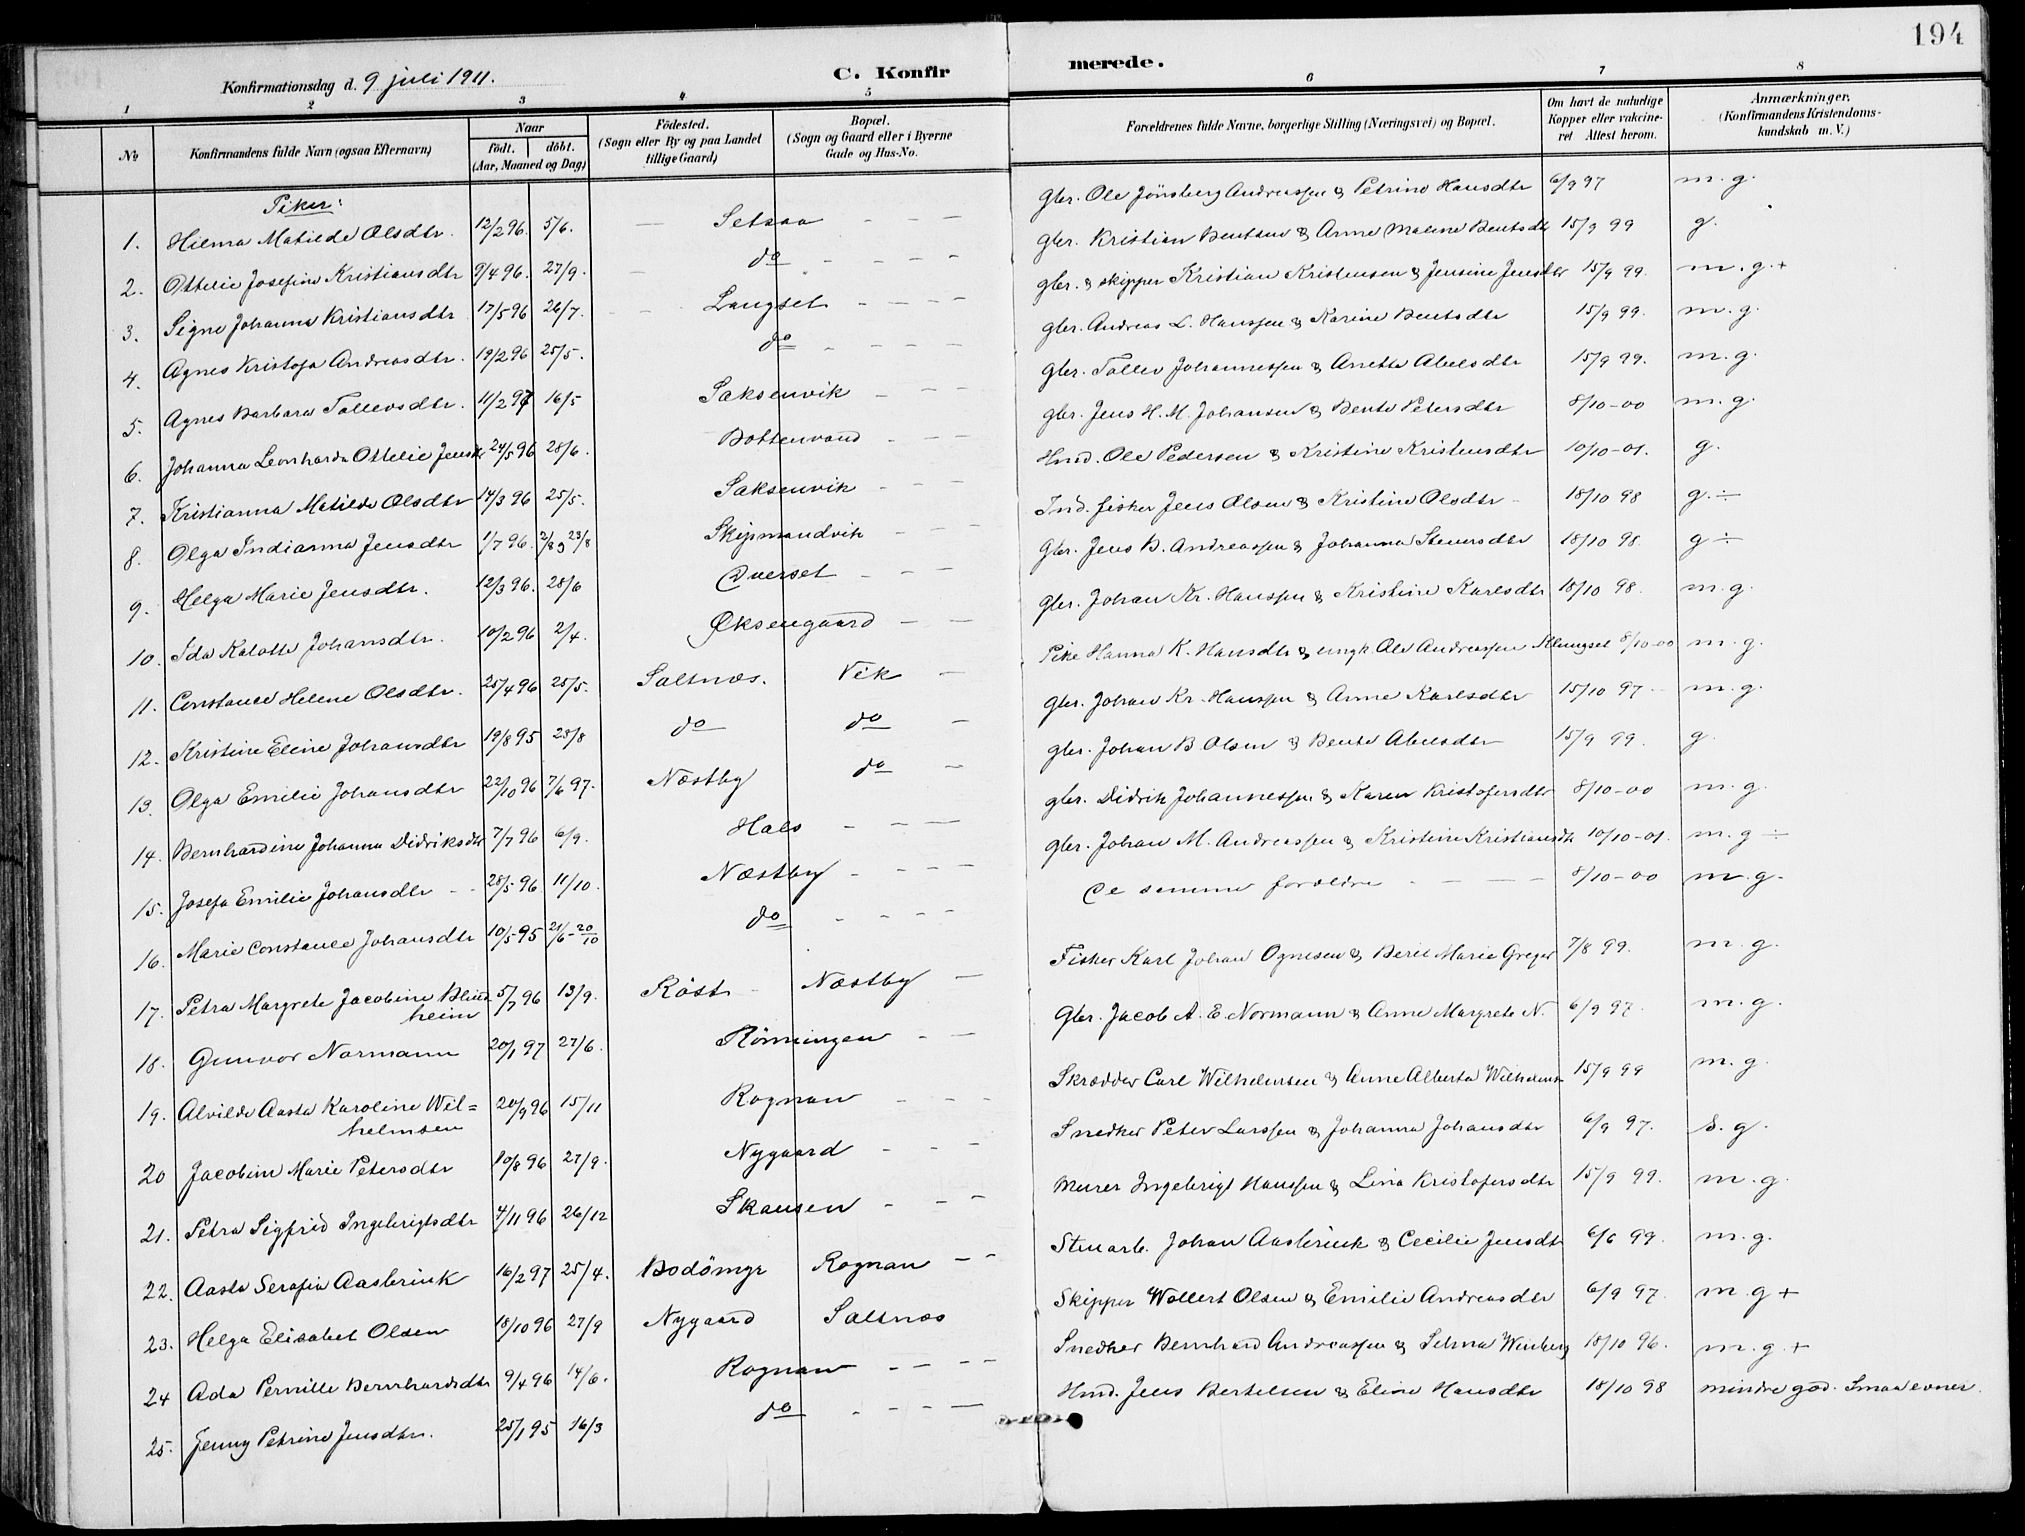 194
Konfirmationsdag d. 9 juli 1911.
C. Konfir merede.
1 2 3 4 5 6 7 8
No Konfirmandens fulde Navn (ogsaa Efternavn) Naar födt. döbt. (Aar, Maaned og Dag) Födested. (Sogn eller By og paa Landet tillige Gaard) Bopæl. (Sogn og Gaard eller i Byerne Gade og Hus-No. Forældrenes fulde Navne, borgerlige Stilling (Næringsvei) og Bopæl. Om havt de naturlige Kopper eller vakcineret Attest herom. Anmærkninger. (Konfirmandens Kristendomskundskab m. V.)
Piker:
1. Hilma Matilde Olsdtr. 12/2 96. 5/6. Setsaa Gbr. Ole Jönsberg Andreassen & Petrine Hansdtr 6/9 97 m. g.
2. Ottelie Josefine Kristiansdtr 9/4 96. 27/9. do Gbr. Kristian Bentsen & Anne Malene Bentsdtr 15/9 99 g.
3. Signe Johanna Kristiansdtr 17/5 96 26/7. Langset gbr. & skipper Kristian Kristensen & Jensine Jensdtr 15/9 99. m. g. +
4. Agnes Kristofa Andreasdtr. 19/2 96 25/5. do gbr. Andreas L. Hanssen & Karine Bentsdtr 15/9 99. m. g.
5. Agnes Barbara Tollevsdtr. 11/2 97 16/5 Saksenvik gbr. Tollev Johannessen & Anetta Abelsdtr 15/9 99. m. g.
6. Johanna Leonharda Ottelie Jensdtr 24/5 96 28/6. Bottenvand gbr. Jens H. M. Johansen & Bente Petersdtr 8/10-00 m. g.
7. Kristianna Matilde Olsdtr 14/3 96 25/5. Saksenvik Hmd. Ole Pedersen & Kristine Kristensdtr 10/10-01. g.
8. Olga Indianna Jensdtr 1/7 96. 2/8 & 23/8 Skipmandvik Ind. fisker Jens Olsen & Kristine Olsdtr 18/10 98 g. ÷
9. Helga Marie Jensdtr. 12/3 96. 28/6 Dverset Gbr. Jens B. Andreassen & Johanna Steversdtr 18/10 98. g ÷
10. Ida Kalotte Johansdtr. 10/2 96 2/4. Øksengaard Gbr. Johan Kr. Hanssen & Kristine Karlsdtr 18/10 98. m. g.
11. Constance Helene Olsdtr. 25/4 96 25/5. Saltnæs. Vik Pike Hanna K. Hansdtr & ungk. Ole Andreassen Klungset 8/10-00 m. g.
12. Kristine Eline Johansdtr 19/8 95 23/8 do do gbr. Johan Kr. Hanssen & Anne Karlsdtr 15/10 97 m. g.
13. Olga Emilie Johansdtr 22/10 96 7/6 97. Næstby do gbr. Johan B Olsen & Bente Abelsdtr 15/9 99. g.
14. Bernhardine Johanna Didriksdtr 7/7 96 6/9. Hals gbr. Didrik Johannessen & Karen Kristofersdtr 8/10-00 m. g.
15. Josefa Emilie Johansdtr 28/5 96 11/10. Næstby gbr. Johan M. Andreassen & Kristine Kristiansdtr 10/10-01. m. g ÷
16. Marie Constance Johansdtr 10/5 95 21/6-20/10 do De samme forældre 8/10-00 m. g.
17. Petra Margrete Jacobine Blindheim 5/7 96 13/9. Röst Næstby Fisker Karl Johan Ognesen & Berit Marie Greger 7/8 99. m. g.
18. Gunvor Normann 20/1 97 27/6. Rönningen Gbr. Jacob A. E. Normann & Anne Margrete N. 6/9 97. m. g.
19. Alvilde Aasta Karoline Wil= helmsen 20/9 96 15/11 Rognan Skrædder Carl Wilhelmsen & Anne Alberta Wilhelmsen 15/9 99 m. g.
20 Jacobine Marie Petersdtr 10/8 96 27/9. Nygaard Snedker Peter Larssen & Johanna Johansdtr 6/9 97. s. g.
21. Petra Sigfrid Ingebrigtsdtr 4/11 96 26/12 Skansen Murer Ingebrigt Hanssen & Lina Kristofersdtr 15/9 99. m. g.
22. Aasta Serafia Aasbrink 16/2 97 25/4. Bodömyr Rognan Stenarb. Johan Aasbrink & Cecilie Jensdtr 6/6 99. m. g.
23. Helga Elisabet Olsen 18/10 96 27/9 Nygaard Saltnæs Skipper Wollert Olsen & Emilie Andreasdtr 6/9 97. m. g +
24 Ada Pernille Bernhardsdtr 9/4 96 14/6. Rognan Snedker Bernhard Andreassen & Selma Weinberg 18/10 96. m. g. +
25. Jenny Petrine Jensdtr. 25/1 95 16/3 do Hmd. Jens Bertelsen & Eline Hansdtr 18/10 98 mindre god. Smaa evner.